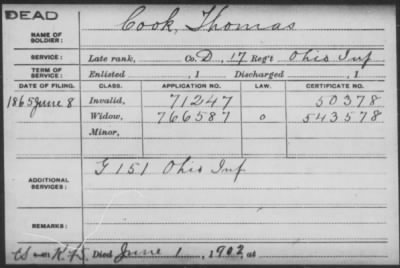 DEAD
NAME OF SOLDIER: Cook, Thomas
SERVICE: Late rank, Co. D, 17 Reg't Ohio Inf
TERM OF SERVICE: Enlisted , 1 Discharged , 1
DATE OF FILING. CLASS. APPLICATION NO. LAW. CERTIFICATE NO.
1865 June 8 Invalid, 71247 50378
Widow, 766587 o 543578
Minor,
ADDITIONAL SERVICES: G 151 Ohio Inf
REMARKS:
Died June 1, 1902, at